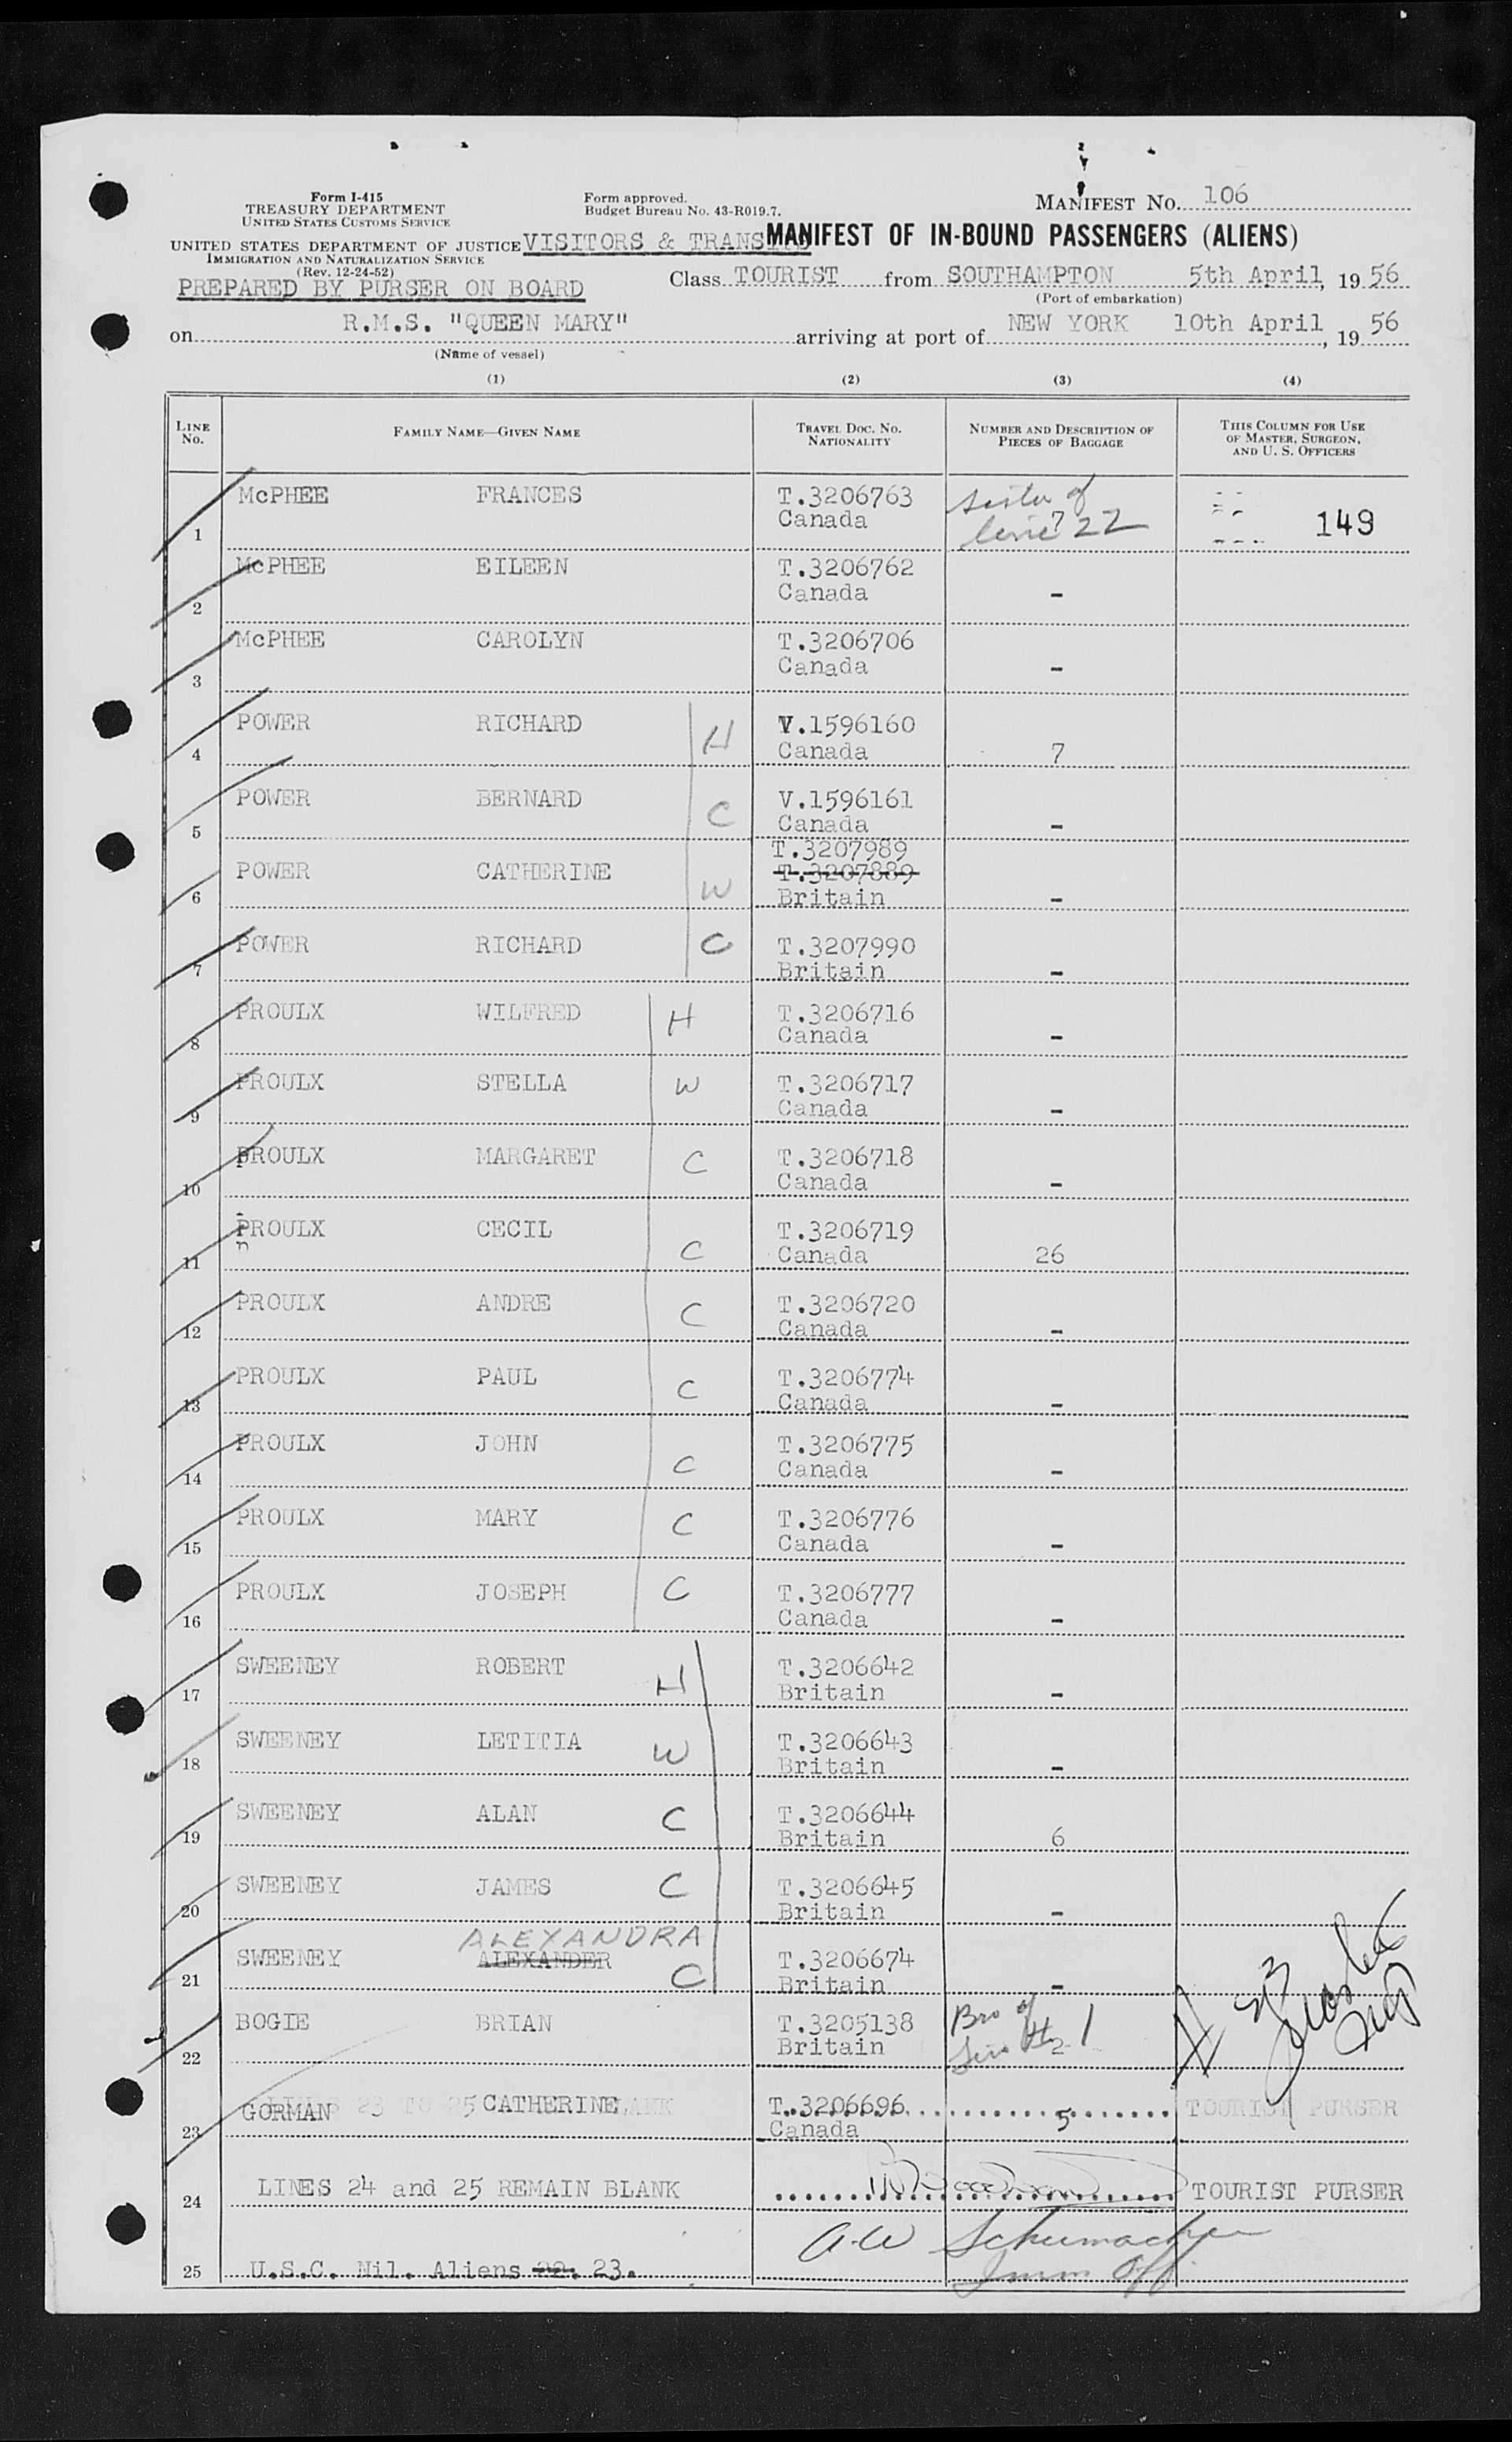 Form I-415
TREASURY DEPARTMENT
UNITED STATES CUSTOMS SERVICE
Form approved.
Budget Bureau No. 43-R019.7.
MANIFEST NO. 106
UNITED STATES DEPARTMENT OF JUSTICE VISITORS & TRANSITS MANIFEST OF IN-BOUND PASSENGERS (ALIENS)
IMMIGRATION AND NATURALIZATION SERVICE
(Rev. 12-24-52)
PREPARED BY PURSER ON BOARD
Class TOURIST from SOUTHAMPTON 5th April, 19 56
(Port of embarkation)
on R.M.S. "QUEEN MARY" arriving at port of NEW YORK 10th April, 19 56
(Name of vessel)
(1) (2) (3) (4)
LINE NO. FAMILY NAME—GIVEN NAME TRAVEL DOC. NO. NATIONALITY NUMBER AND DESCRIPTION OF PIECES OF BAGGAGE THIS COLUMN FOR USE OF MASTER, SURGEON, AND U. S. OFFICERS
1 McPHEE FRANCES T.3206763 Canada sister of line 22 7 149
2 McPHEE EILEEN T.3206762 Canada -
3 McPHEE CAROLYN T.3206706 Canada -
4 POWER RICHARD H V.1596160 Canada 7
5 POWER BERNARD C V.1596161 Canada -
6 POWER CATHERINE W T.3207989 T.3207889 Britain -
7 POWER RICHARD C T.3207990 Britain -
8 PROULX WILFRED H T.3206716 Canada -
9 PROULX STELLA W T.3206717 Canada -
10 PROULX MARGARET C T.3206718 Canada -
11 PROULX CECIL C T.3206719 Canada 26
12 PROULX ANDRE C T.3206720 Canada -
13 PROULX PAUL C T.3206774 Canada -
14 PROULX JOHN C T.3206775 Canada -
15 PROULX MARY C T.3206776 Canada -
16 PROULX JOSEPH C T.3206777 Canada -
17 SWEENEY ROBERT H T.3206642 Britain -
18 SWEENEY LETITIA W T.3206643 Britain -
19 SWEENEY ALAN C T.3206644 Britain 6
20 SWEENEY JAMES C T.3206645 Britain -
21 SWEENEY ALEXANDRA ALEXANDER C T.3206674 Britain -
22 BOGIE BRIAN T.3205138 Britain Bro of Line # 1 2
23 GORMAN CATHERINE T.3206696 Canada 5 TOURIST PURSER
24 LINES 24 and 25 REMAIN BLANK TOURIST PURSER
A.W Schumacher
25 U.S.C. Nil. Aliens 22. 23. Imm Off